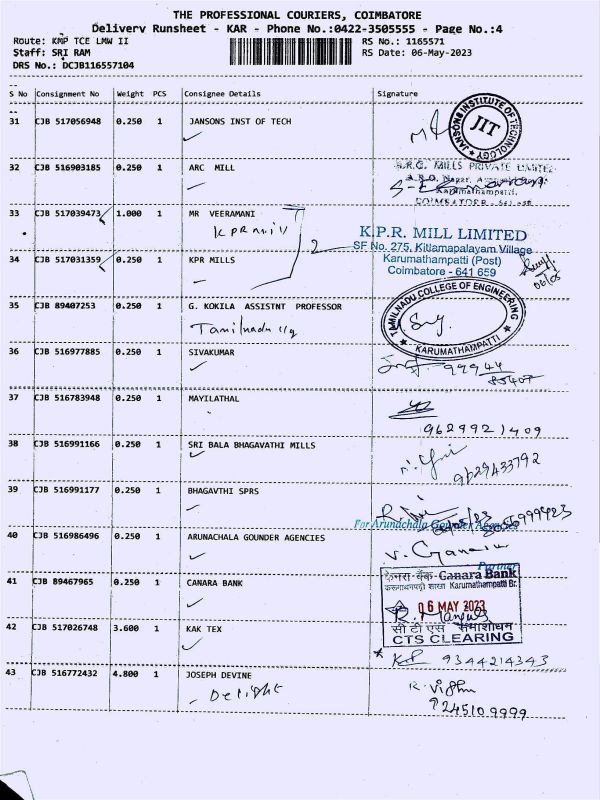 THE PROFESSIONAL COURIERS, COIMBATORE
Delivery Runsheet - KAR - Phone No.:0422-3505555 - Page No.:4
Route: KMP TCE LMW II
RS No.: 1165571
Staff: SRI RAM
RS Date: 06-May-2023
DRS No.: DCJB116557104
S No Consignment No Weight PCS Consignee Details Signature
31 CJB 517056948 0.250 1 JANSONS INST OF TECH
JANSONS INSTITUTE OF TECHNOLOGY
JIT
32 CJB 516903185 0.250 1 ARC MILL
MILLS PRIVATE LIMITED
Karumathampatti,
33 CJB 517039473 1.000 1 MR VEERAMANI
KPR mill
2
K.P.R. MILL LIMITED
SF No. 275, Kittampalayam Village
Karumathampatti (Post)
Coimbatore - 641 659
06/05
34 CJB 517031359 0.250 1 KPR MILLS
35 CJB 89407253 0.250 1 G. KOKILA ASSISTNT PROFESSOR
Tamilnadu
TAMILNADU COLLEGE OF ENGINEERING
KARUMATHAMPATTI
36 CJB 516977885 0.250 1 SIVAKUMAR
99944
85407
37 CJB 516783948 0.250 1 MAYILATHAL
9629921409
38 CJB 516991166 0.250 1 SRI BALA BHAGAVATHI MILLS
9629433792
39 CJB 516991177 0.250 1 BHAGAVTHI SPRS
For Arunachala Gounder Agencies
40 CJB 516986496 0.250 1 ARUNACHALA GOUNDER AGENCIES
Partner
41 CJB 89467965 0.250 1 CANARA BANK
केनरा बैंक-Canara Bank
Karumathampatti Br.
06 MAY 2023
सी टी एस समाशोधन
CTS CLEARING
42 CJB 517026748 3.600 1 KAK TEX
9344214343
43 CJB 516772432 4.800 1 JOSEPH DEVINE
Delight
R. Vishnu
9245109999